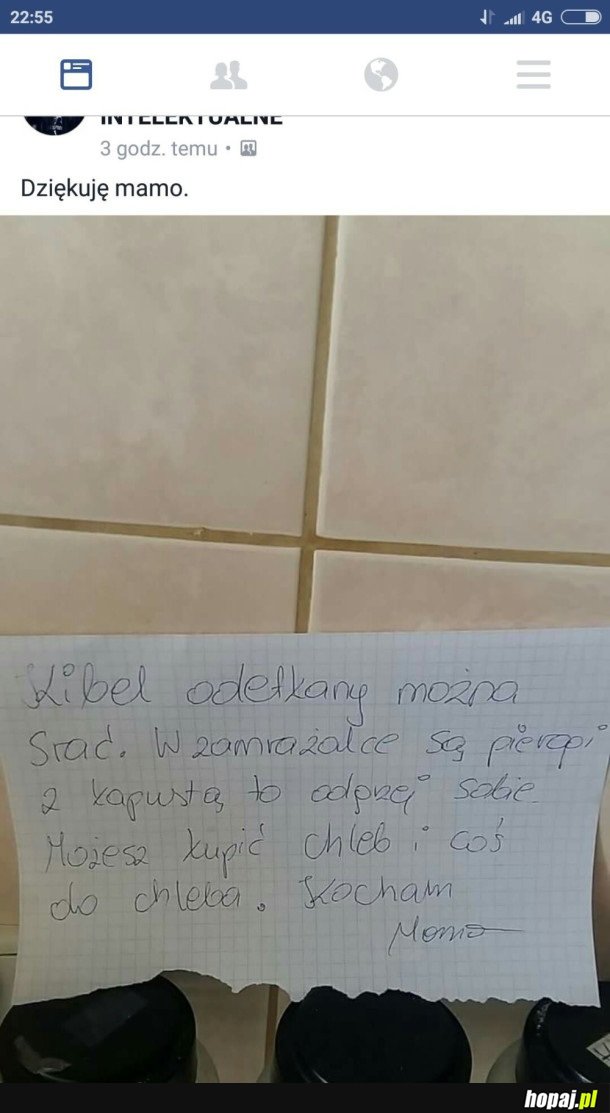 22:55
4G
INTELEKTUALNE
3 godz. temu
Dziękuję mamo.
Kibel odetkany można
srać. W zamrażalce są pierogi
z kapustą to odgrzej sobie.
Możesz kupić chleb i coś
do chleba. Kocham
Mama
hopaj.pl